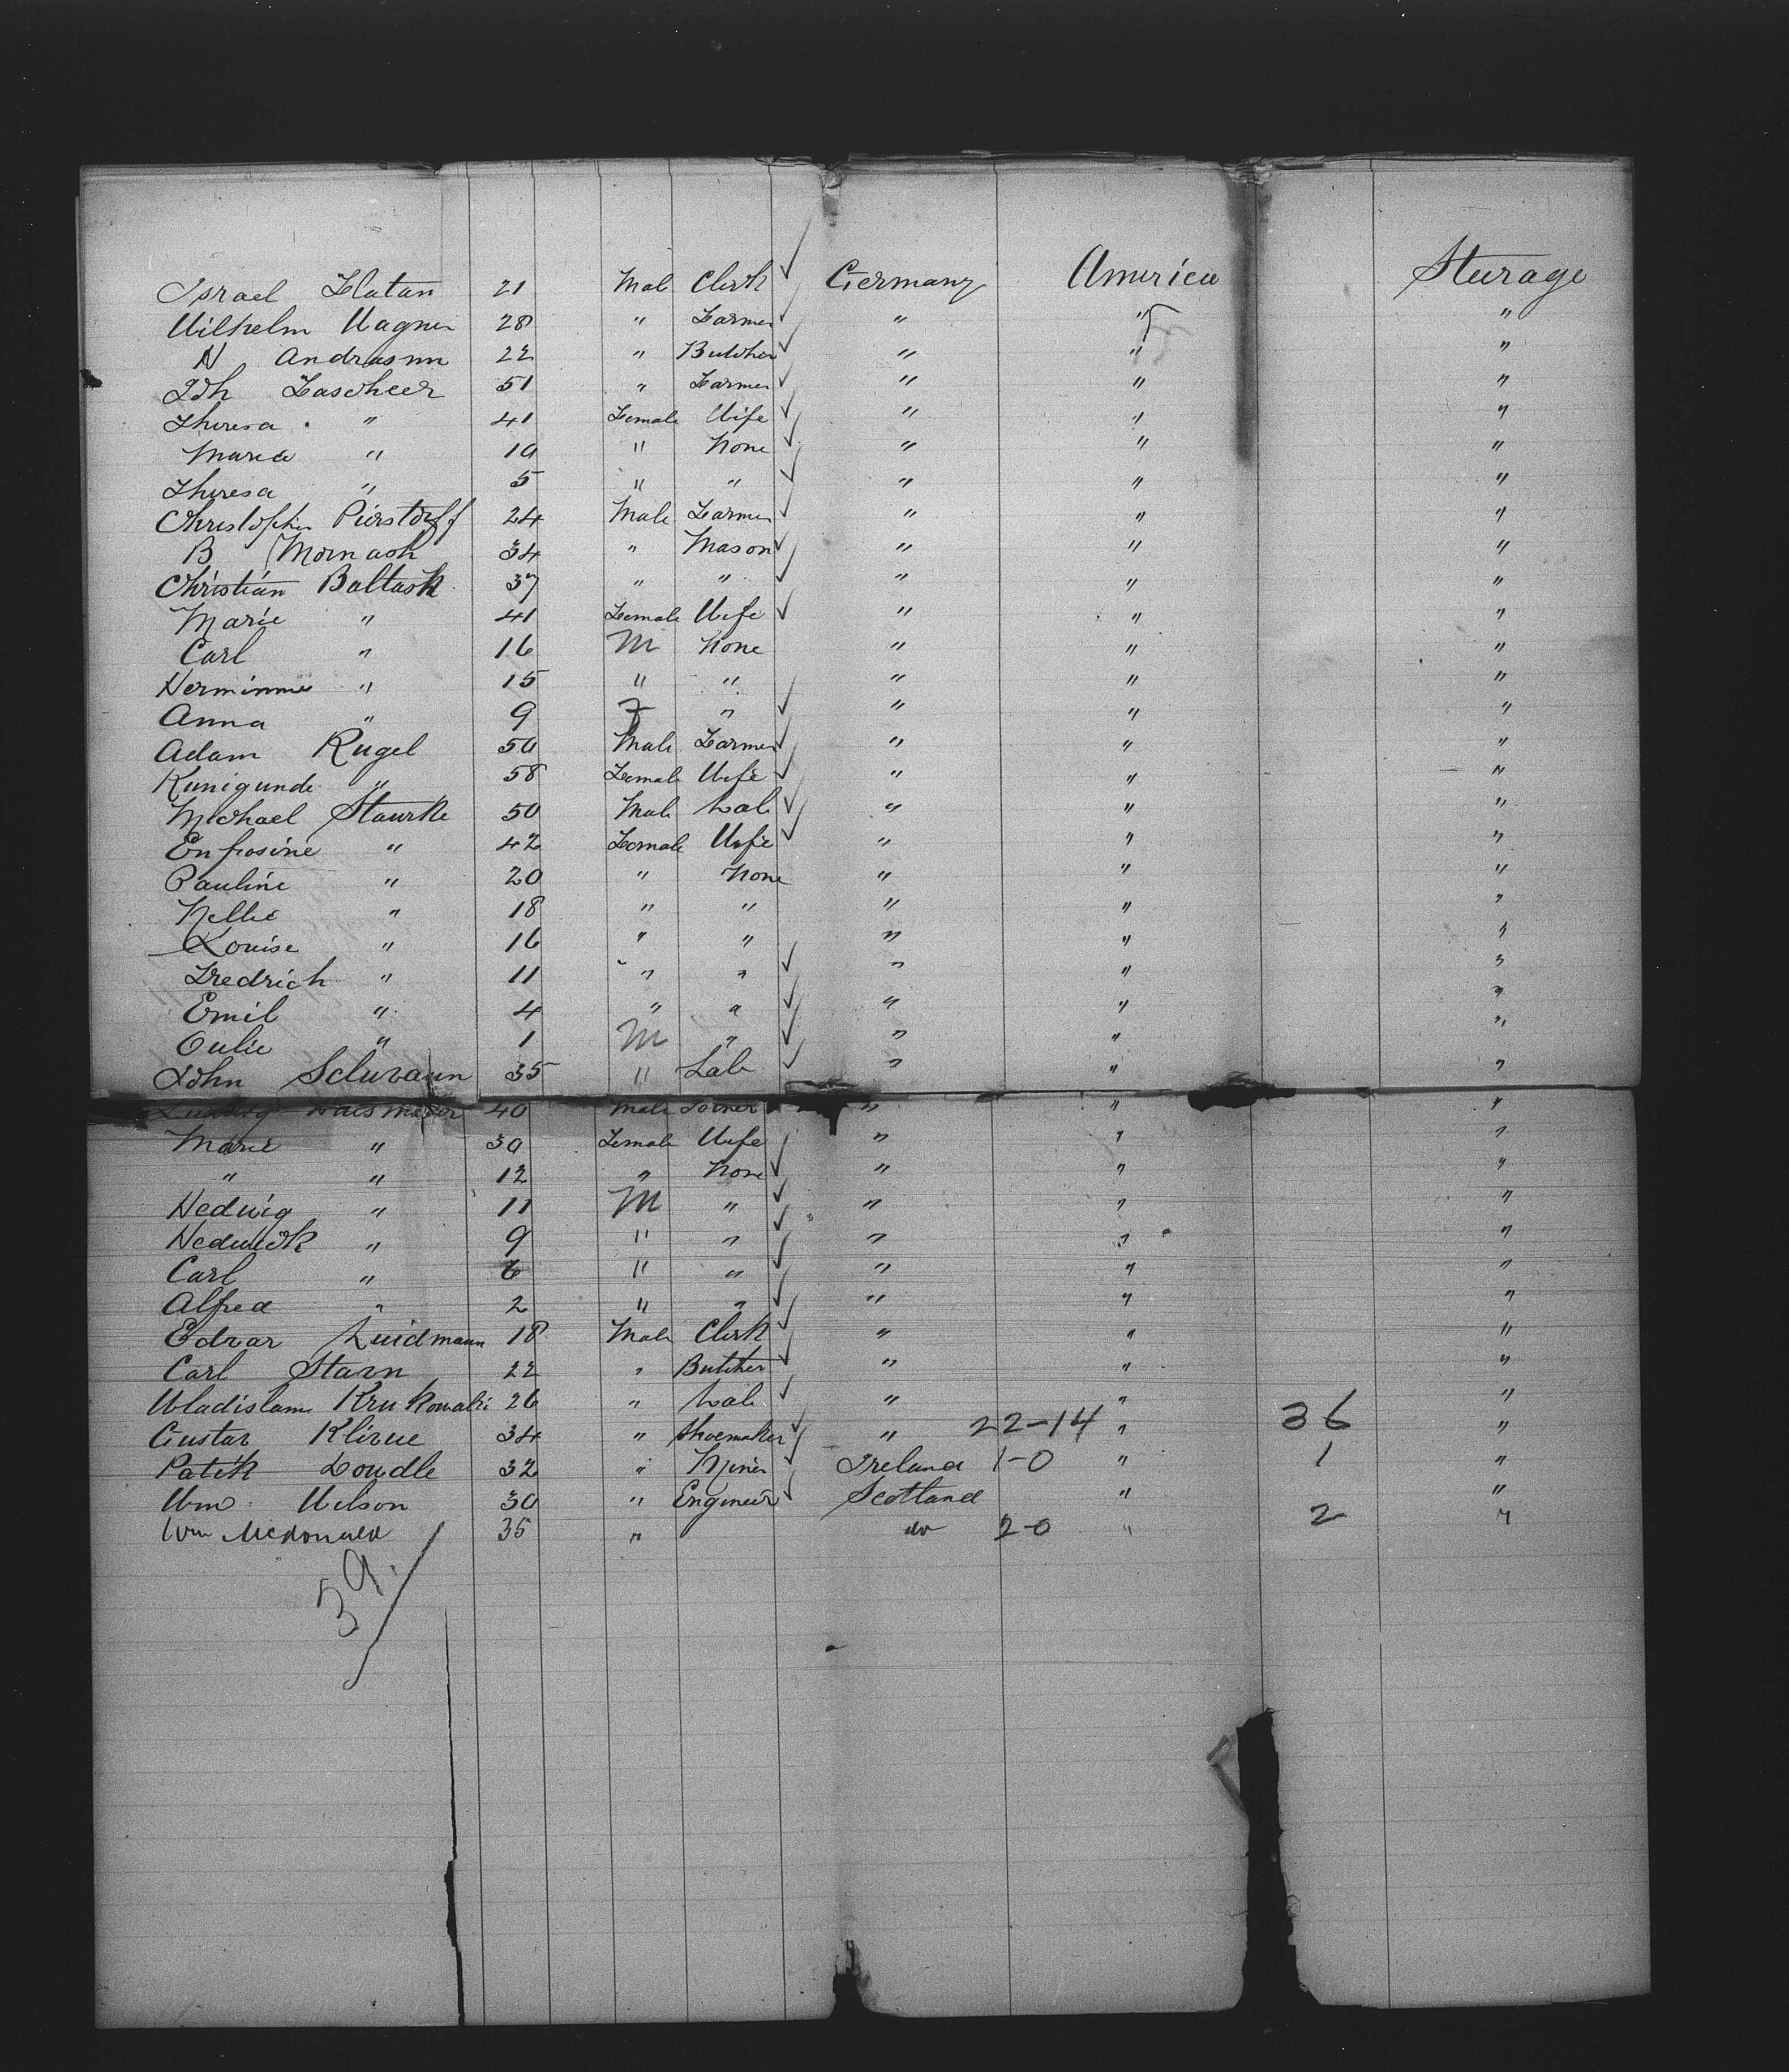 Israel Flatau 21 Male Clerk Germany America Sturage
Wilhelm Wagner 28 " Farmer " " "
N Andrasnm 22 " Butcher " " "
Joh Fascheer 51 " Farmer " " "
Theresa " 41 Female Wife " " "
Maria " 19 " None " " "
Theresa " 5 " " " " "
Christopher Pierstorff 24 Male Farmer " " "
B Mornash 34 " Mason " " "
Christian Baltash 37 " " " " "
Marie " 41 Female Wife " " "
Carl " 16 M None " " "
Herminnie " 15 " " " " "
Anna " 9 F " " " "
Adam Kugel 59 Male Farmer " " "
Kunigunde " 58 Female Wife " " "
Michael Staurke 50 Male Lab " " "
Enfrosine " 42 Female Wife " " "
Pauline " 20 " None " " "
Nellie " 18 " " " " "
Louise " 16 " " " " "
Fredrich " 11 " " " " "
Emil " 4 " " " " "
Oulie " 1 M " " " "
John Schwaun 35 " Lab " " "
Ludwig 40 Male Joiner " " "
Marie " 39 Female Wife " " "
" " 12 " None " " "
Hedwig " 11 M " " " "
" 9 " " " " "
Carl " 6 " " " " "
Alfred " 2 " " " " "
Edvar Luidmann 18 Male Clerk " " "
Carl Starn 22 " Butcher " " "
Wladislam Krukowalki 26 " Lab " " "
Gustav Klirue 34 " Shoemaker " 22-14 " 36 "
Patik Loudle 32 " Miner Ireland 1-0 " 1 "
Wm Wilson 30 " Engineer Scotland " "
Wm McDonald 35 " do 2-0 " 2 "
39